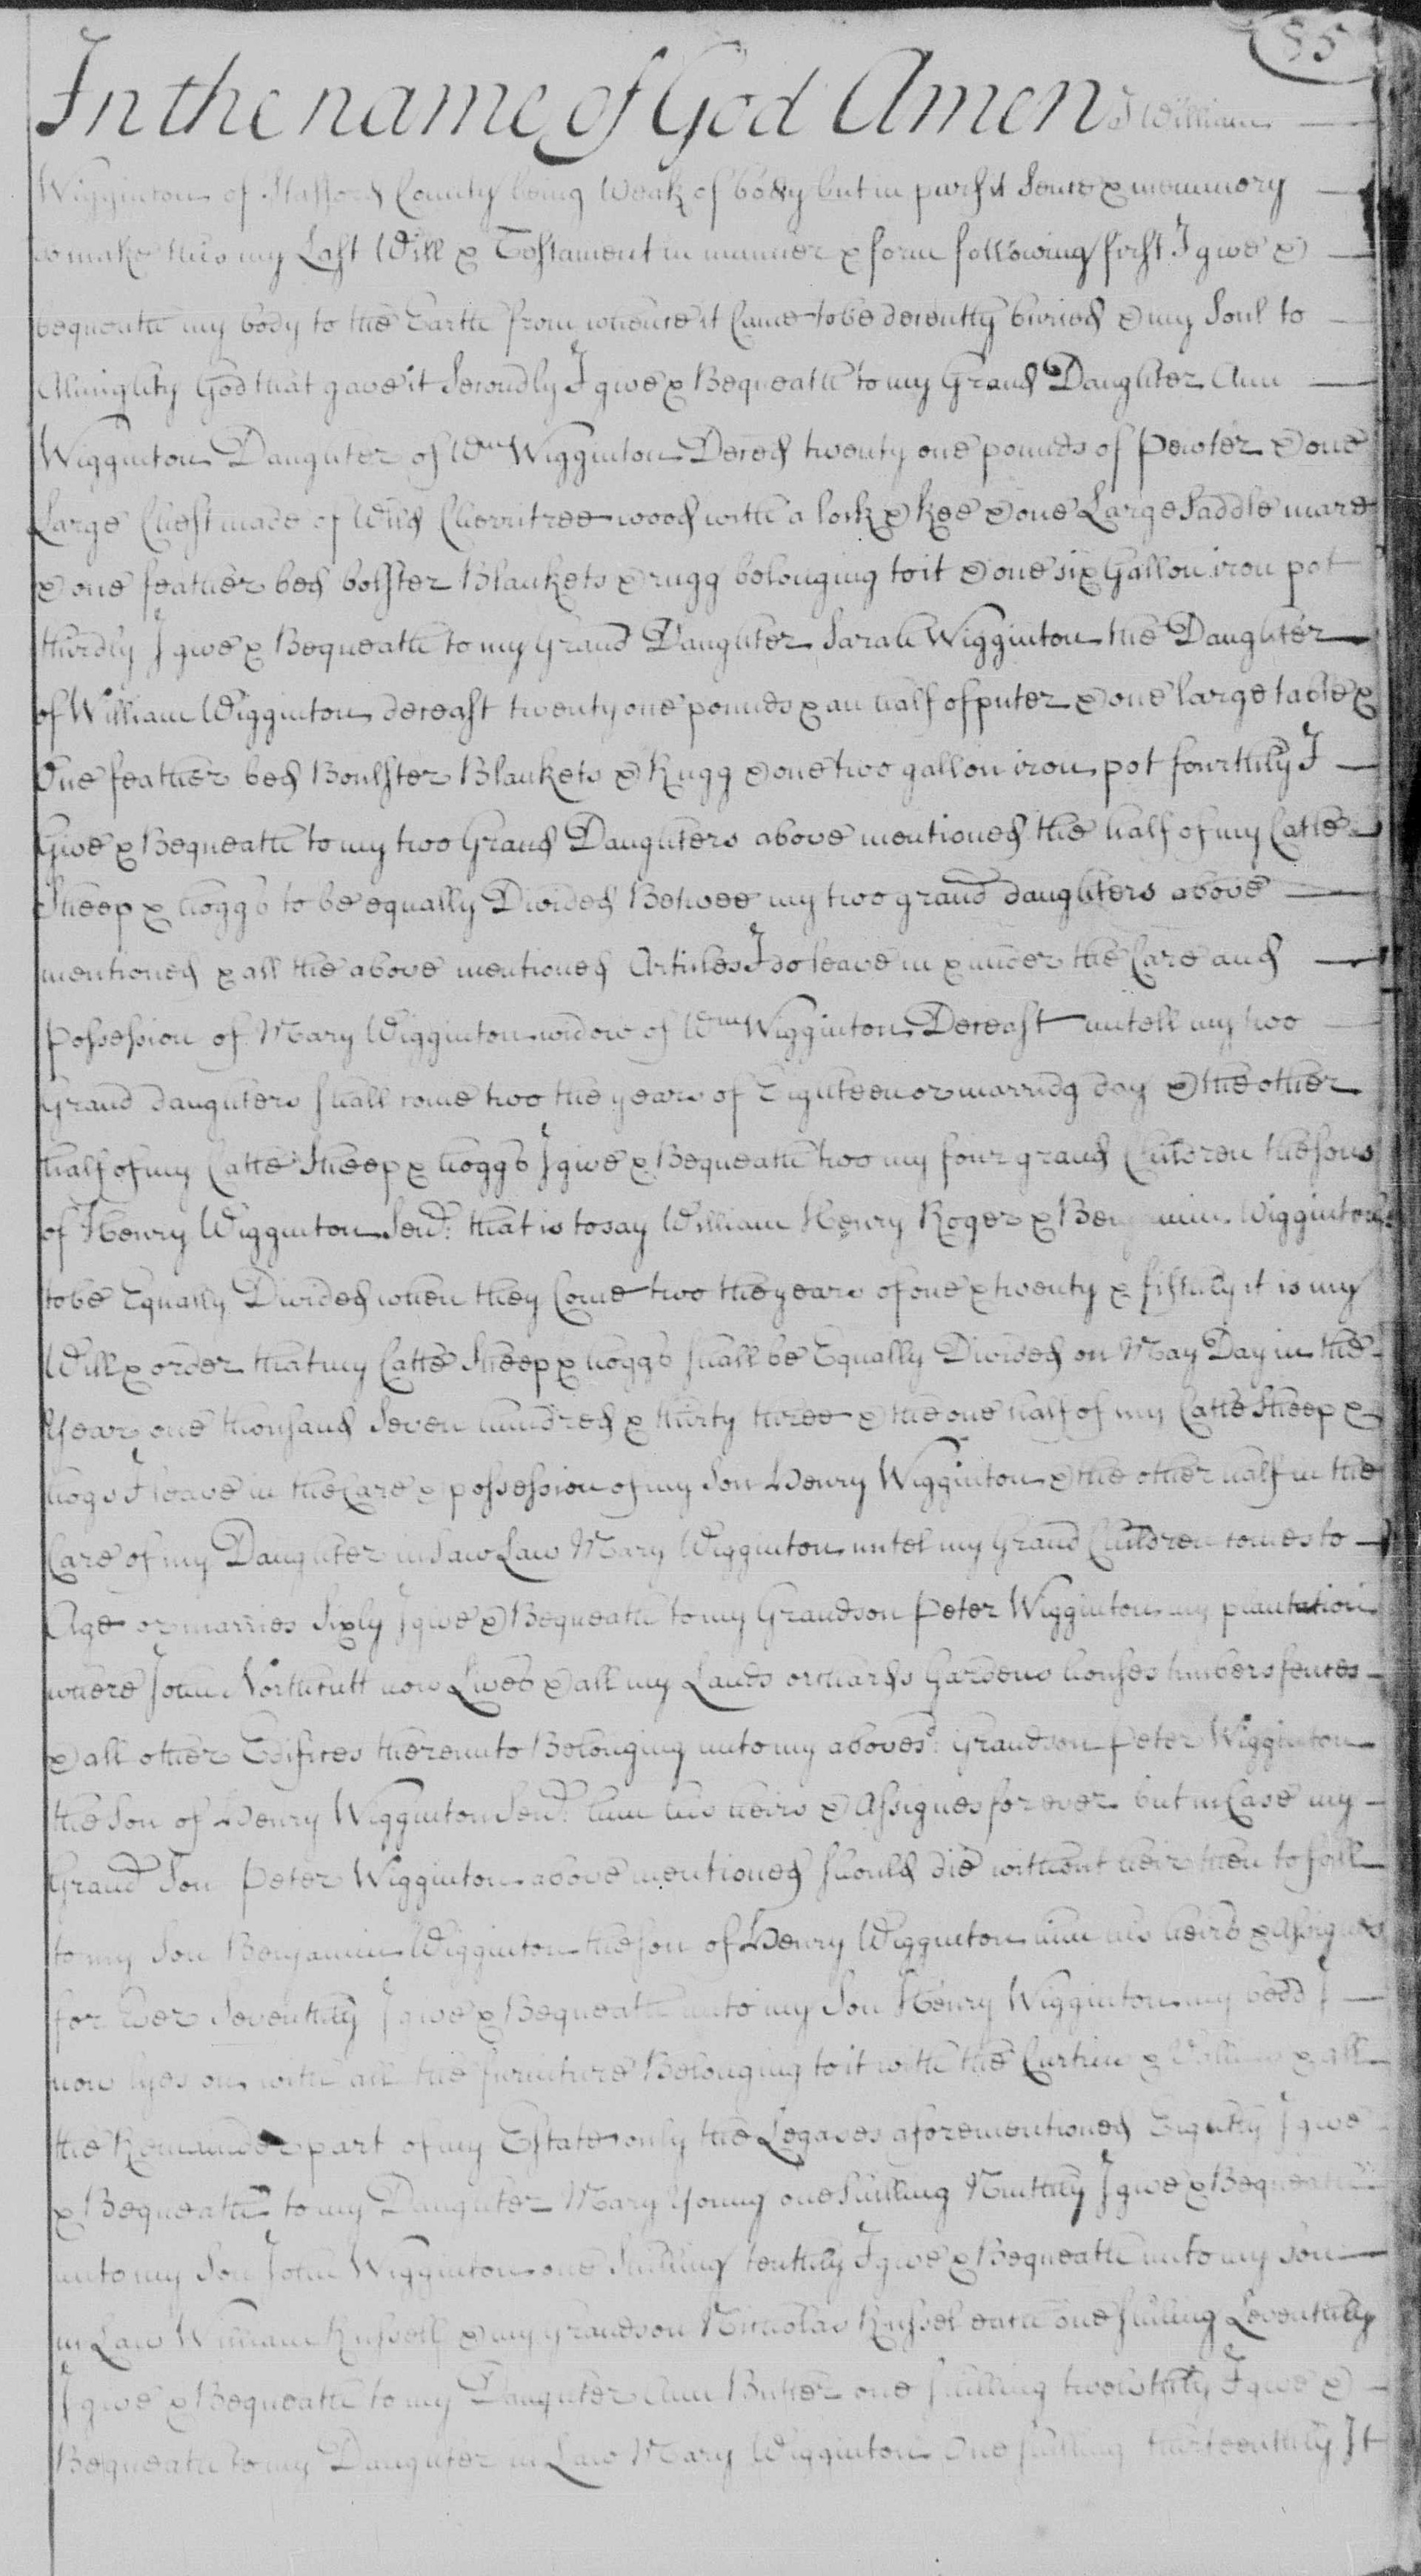 85
In the name of God Amen I William
Wigginton of Stafford County being Weak of body but in purfit Sence & memmory
do make this my Last Will & Testament in manner & form following first I give &
bequeath my body to the Earth from whence it Came to be decently buried & my Soul to
Almighty God that gave it Secondly I give & Bequeath to my Grand Daughter Ann
Wigginton Daughter of Wm Wigginton Decd twenty one pounds of Pewter & one
Large Chest made of Wild Cherritree wood with a lock & kee & one Large Saddle mare
& one feather bed bolster Blankets & rugg belonging to it & one six Gallon iron pot
thirdly I give & Bequeath to my Grand Daughter Sarah Wigginton the Daughter
of William Wigginton deceast twenty one pounds & an half of puter & one large table &
One feather bed Boulster Blankets & Rugg & one two gallon iron pot fourthly I
Give & Bequeath to my two Grand Daughters above mentioned the half of my Catte
Sheep & hoggs to be equally Divided Betwee my two grand daughters above
mentioned & all the above mentioned Articles I do leave in & under the Care and
possession of Mary Wigginton widow of Wm Wigginton Deceast untell my two
Grand daughters shall come two the years of Eighteen or marridg day & the other
half of my Catte Sheep & hoggs I give & Bequeath two my four grand Children the sons
of Henry Wigginton Senr. that is to say William Henry Roger & Benjamin Wigginton
to be Equally Divided when they Come two the years of one & twenty & fifthly it is my
Will & order that my Catte Sheep & hoggs shall be Equally Divided on May Day in the
Year one thousand Seven hundred & thirty three & the one half of my Catte Sheep &
hogs I leave in the Care & possession of my Son Henry Wigginton & the other half in the
Care of my Daughter in Law Law Mary Wigginton untel my Grand Children comes to
Age or marries Sixly I give & Bequeath to my Grandson Peter Wigginton my plantation
where John Northcutt now Lives & all my Lands orchards Gardens houses timbers fences
& all other Edifices thereunto Belonging unto my aboves.d Grandson Peter Wigginton
the Son of Henry Wigginton Senr. him his heirs & Assignes for ever but in Case my
Grand Son Peter Wigginton above mentioned should die without heir then to fall
to my Son Benjamin Wigginton the son of Henry Wigginton him his heirs & Assignes
for Ever Seventhly I give & Bequeath unto my Son Henry Wigginton my bedd I
now lyes on with all the furniture Belonging to it with the Curtins & Vallins & all
the Remainder part of my Estate only the Legaces aforementioned Eightly I give
& Bequeath to my Daughter Mary Young one Shilling Ninthly I give & Bequeath
unto my Son John Wigginton one Shilling tenthly I give & Bequeath unto my Son
in Law William Russell & my grandson Nicholas Russel each one shiling Leventhly
I give & Bequeath to my Daughter Ann Butler one shilling twelvthly I give &
Bequeath to my Daughter in Law Mary Wigginton One shilling thirteenthly It